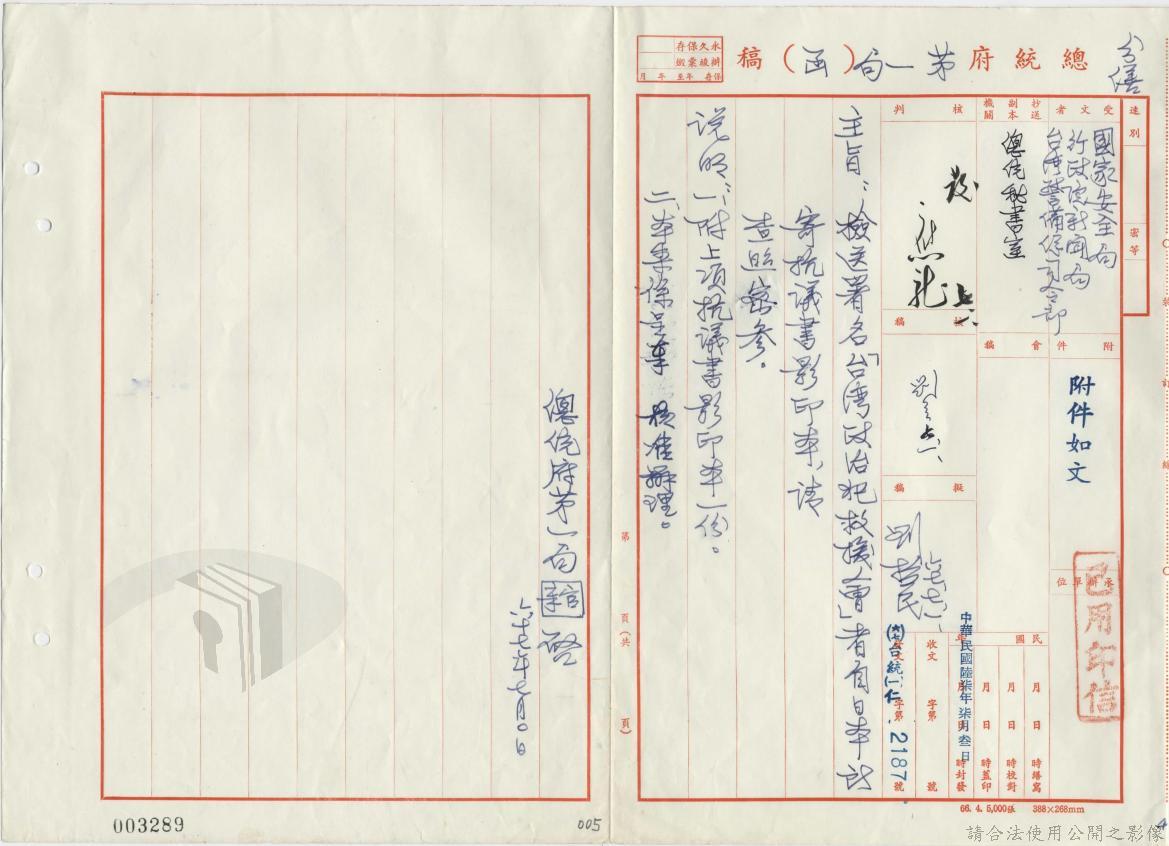 分繕
總統府第一局(函)稿
永久保存
速別
密等
受文者
國家安全局
行政院新聞局
台湾警備總司令部
抄送副本機關
總統秘書室
核判
發
核稿
擬稿
劉哲民
會稿
附件
附件如文
承辦單位
已用印信
民國 年
月 日 時繕寫
月 日 時校對
月 日 時蓋印
月 日 時封發
中華民國陸柒年柒月叁日
收文 字第 號
發文 字第 號
(六七)台統(一)仁 2187
主旨：檢送署名「台湾政治犯救援會」者自日本所
寄抗議書影印本，請
查照參。
說明：一、附上項抗議書影印本一份。
二、本案係呈奉 核准辦理。
第 頁(共 頁)
總統府第一局 啓
六十七年七月 日
66. 4. 5,000張 388×268mm
003289
005
4
請合法使用公開之影像